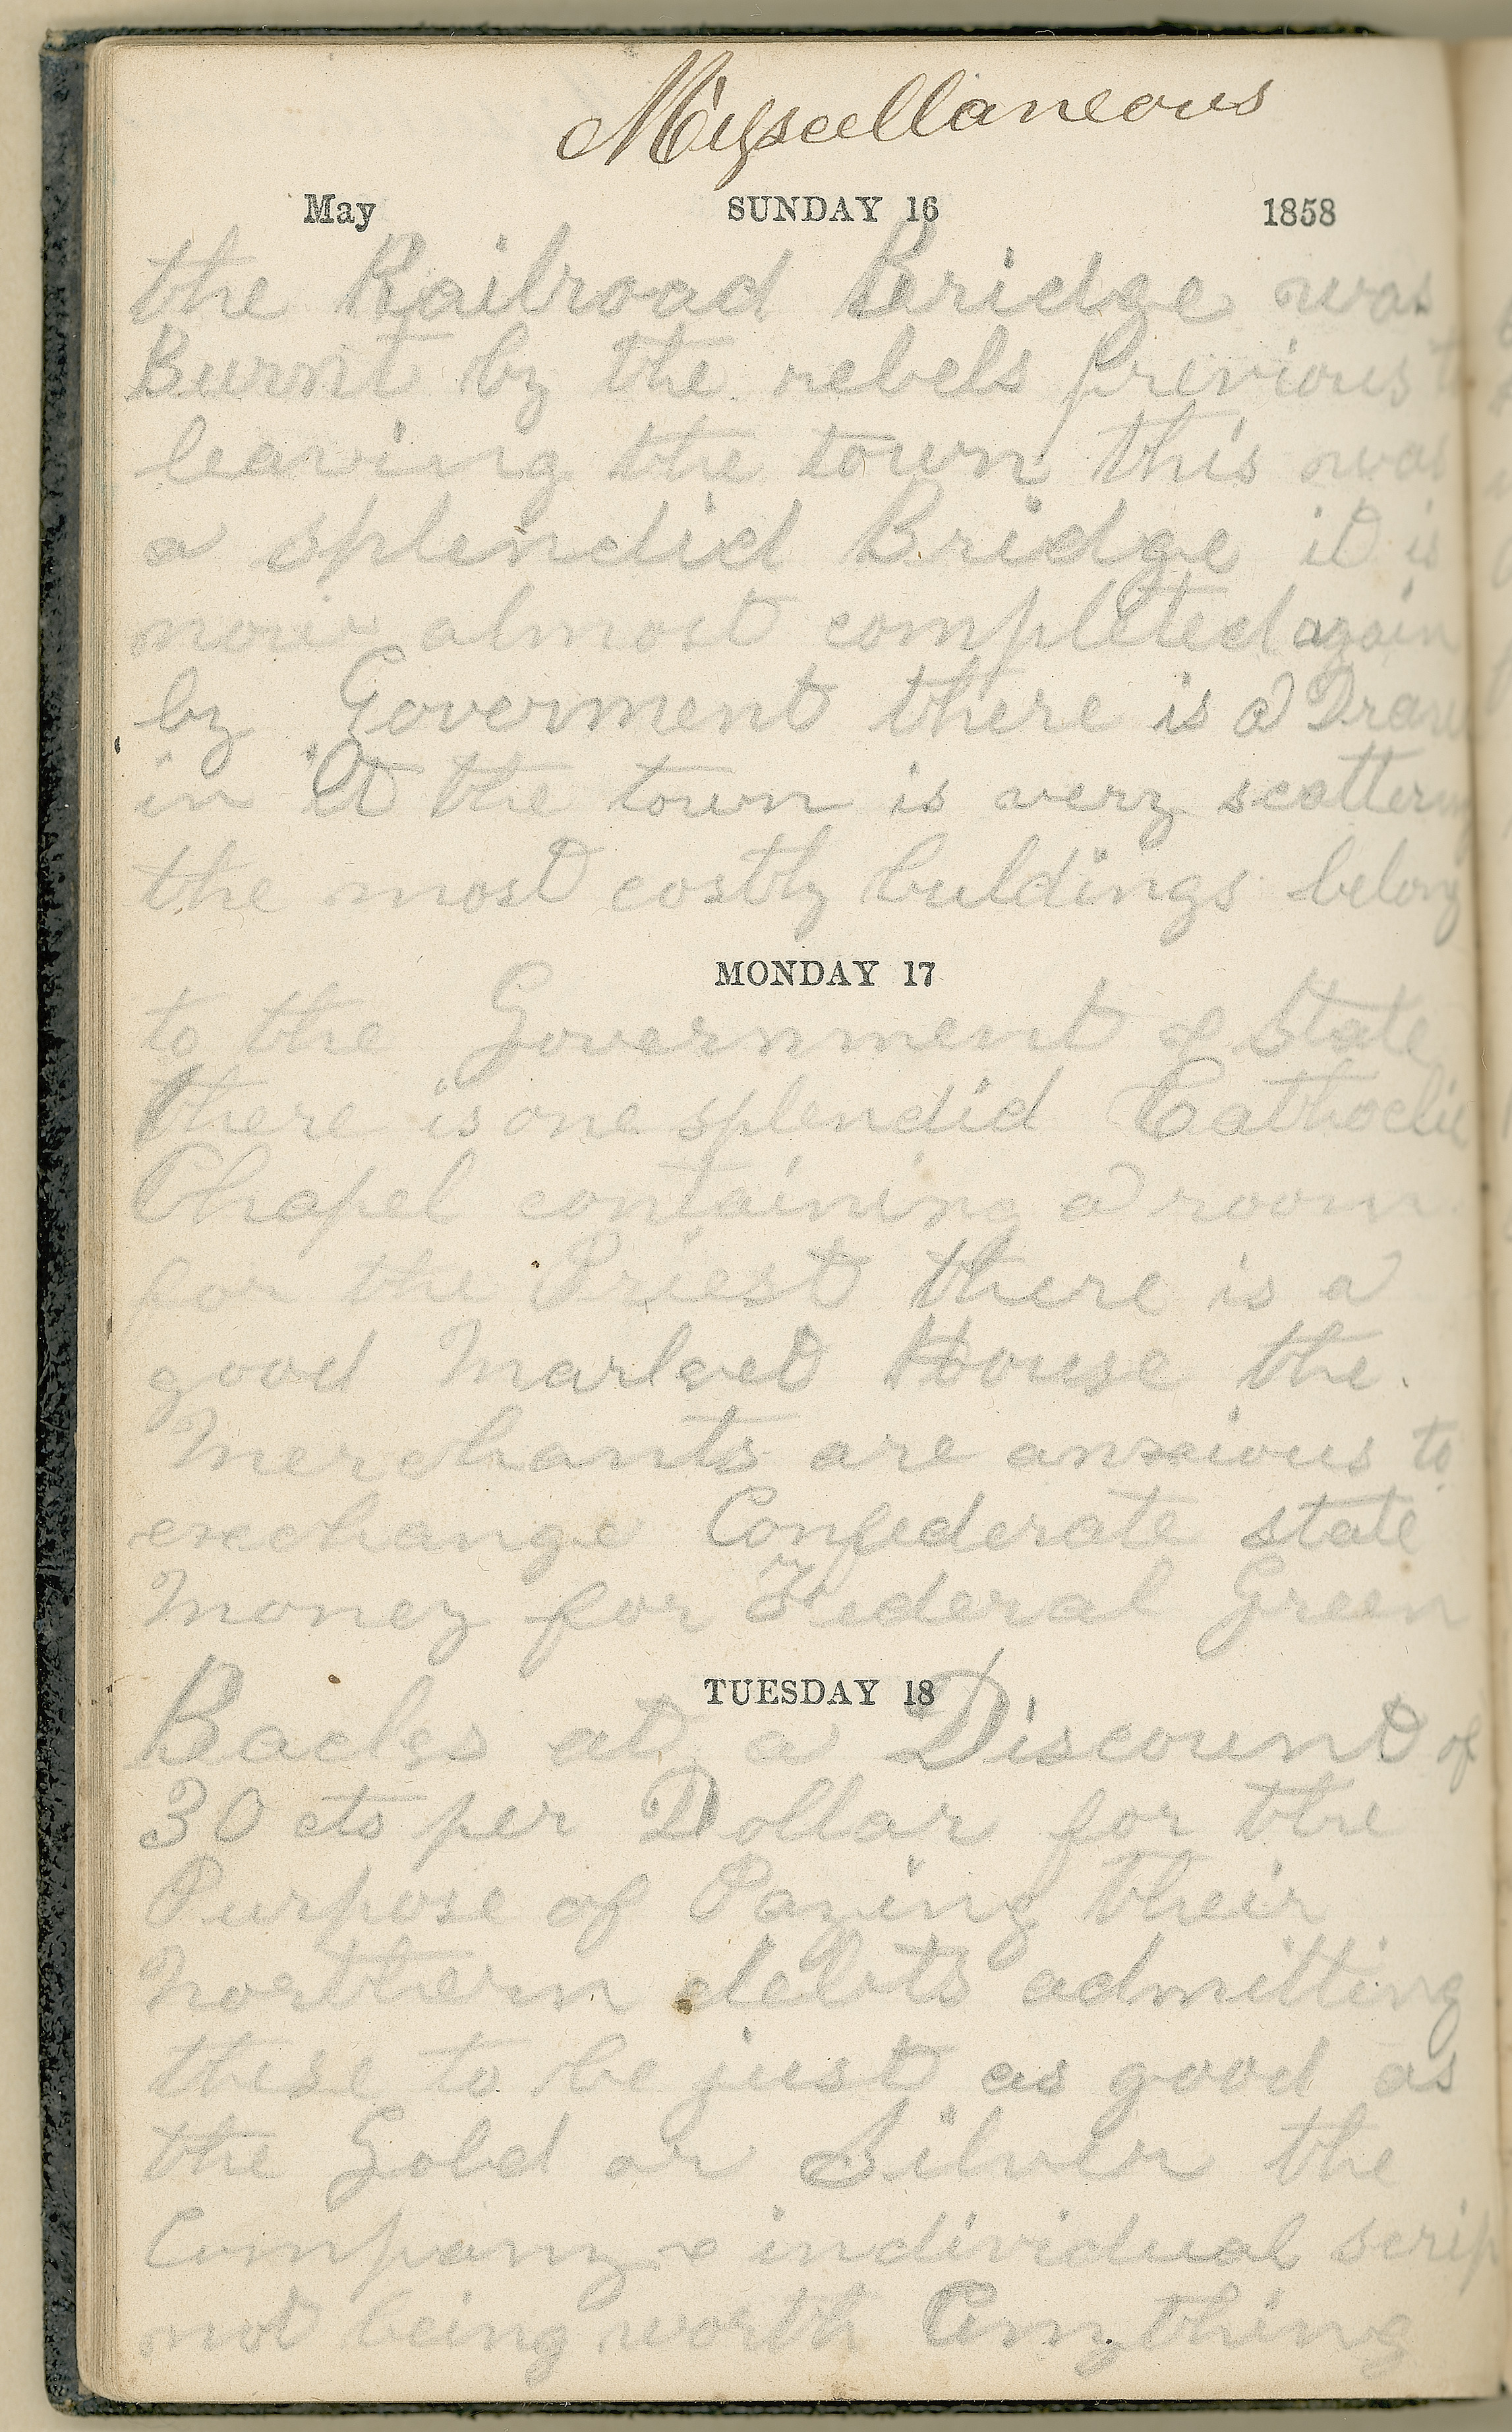 Miyscellaneous
May SUNDAY 16 1858
the Railroad Bridge was
Burnt by the rebels previous
leaving the town this was
a splendid Bridge it is
now almost completed again
by Goverment there is a Draw
in it the town is very scattering
the most costly buldings belong
MONDAY 17
to the Government & State
there is one splendid Cathoclic
Chapel containing a room
for the Priest there is a
good Market House the
Merchants are anxious to
exchange Confederate state
Money for Federal Green
TUESDAY 18
Backs at a Discount of
30 cts per Dollar for the
Purpose of Paying their
Northern debts admitting
these to be just as good as
the Gold or Silver the
Company & individual scrip
not being worth Anything